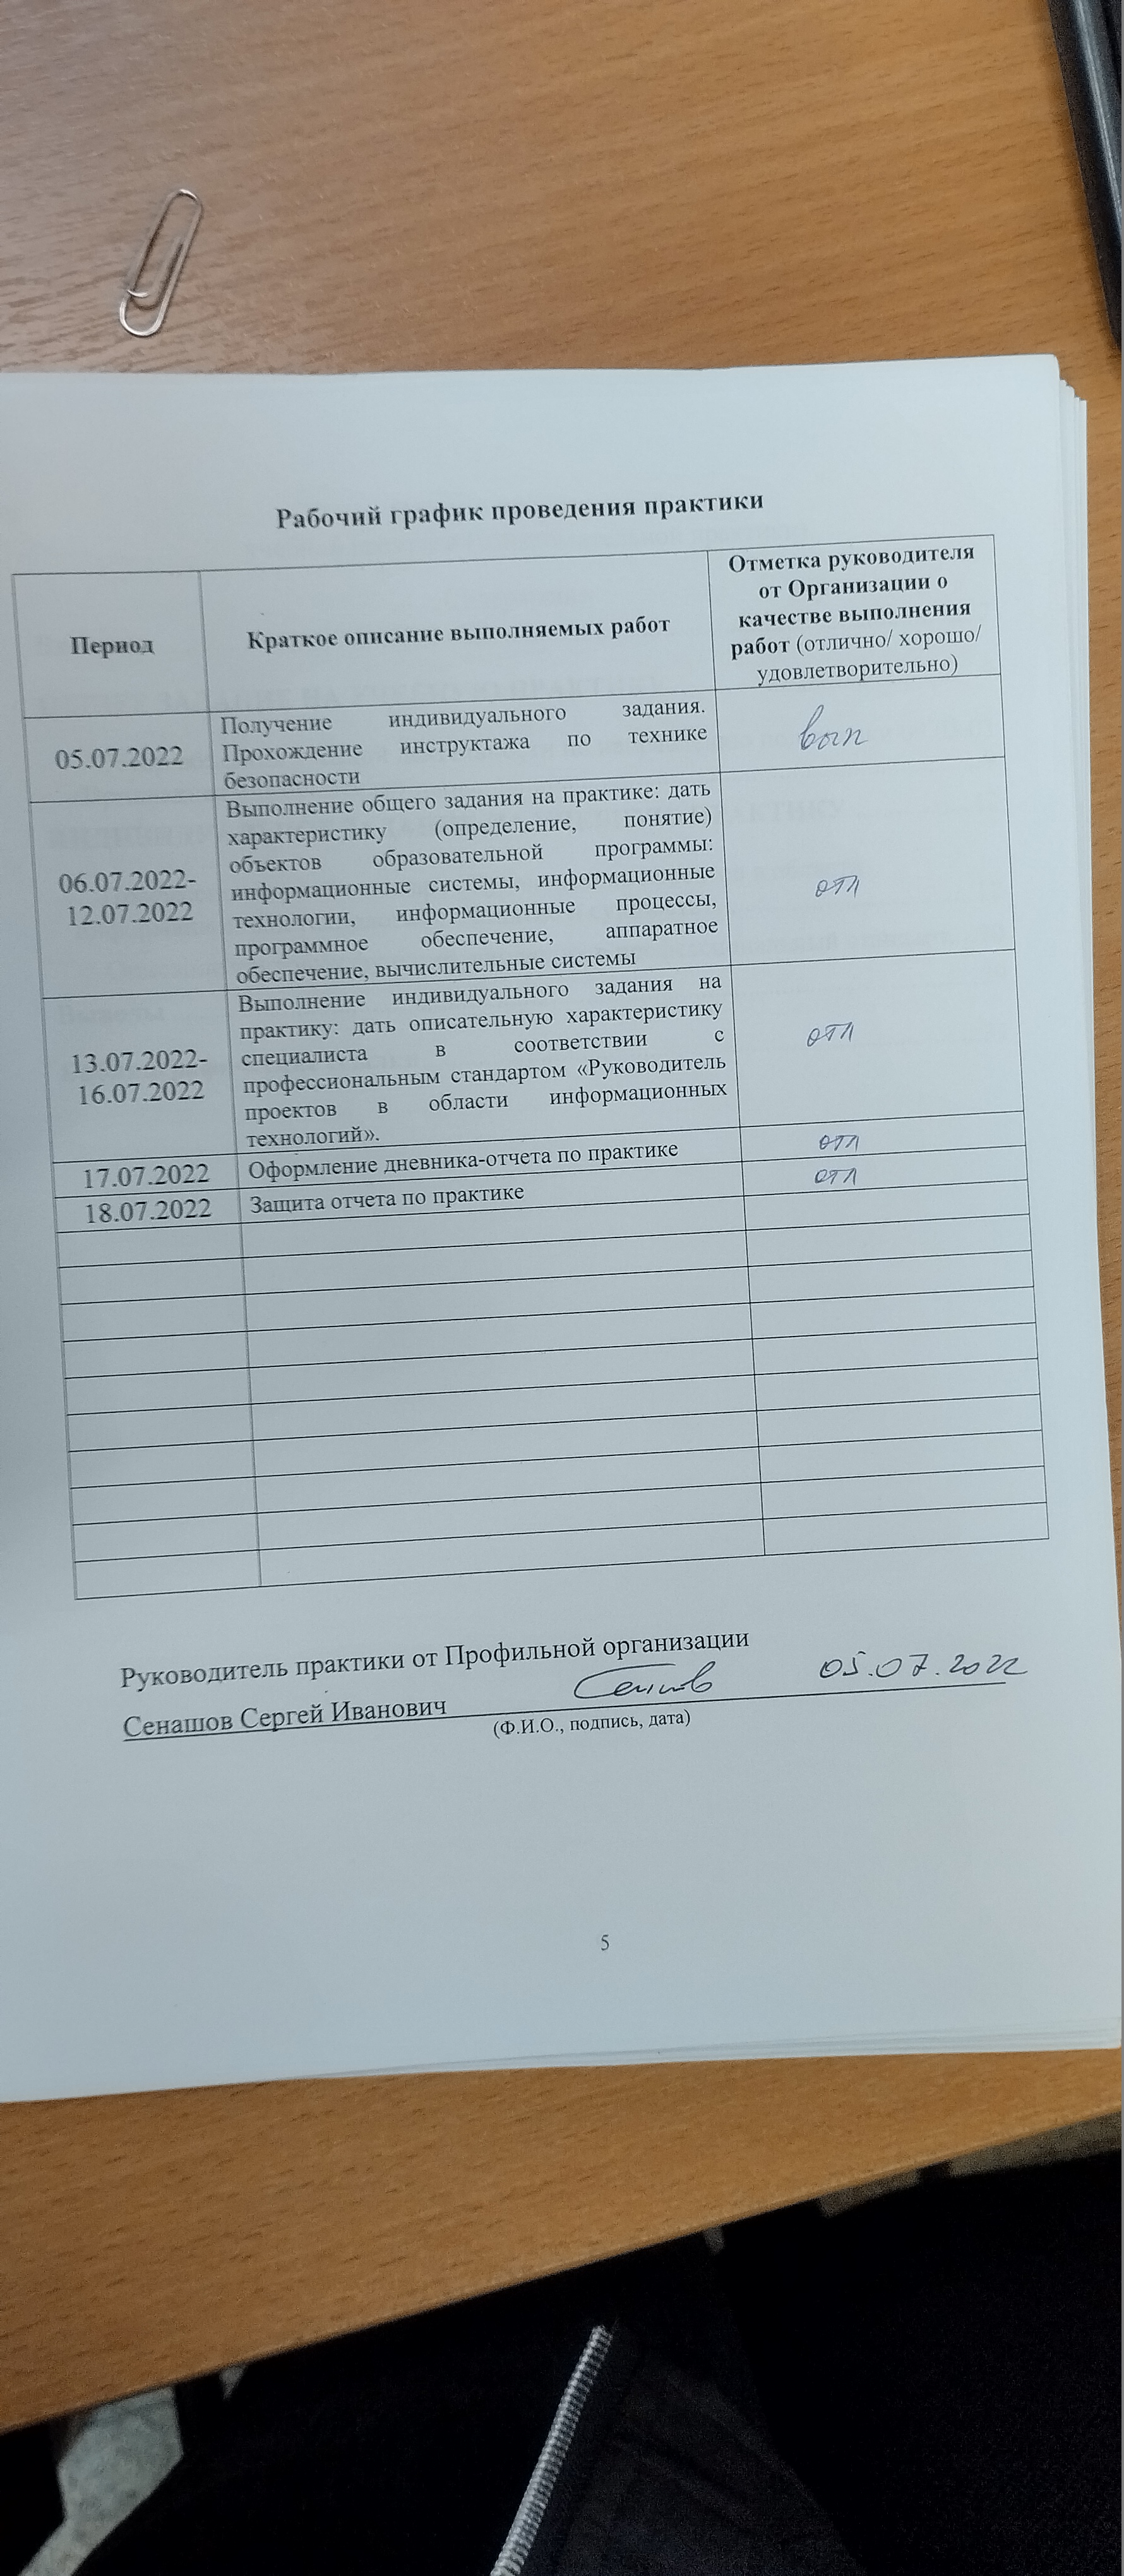 Рабочий график проведения практики
Период
Краткое описание выполняемых работ
Отметка руководителя
от Организации о
качестве выполнения
работ (отлично/ хорошо/
удовлетворительно)
05.07.2022
Получение индивидуального задания.
Прохождение инструктажа по технике
безопасности
вып
06.07.2022-
12.07.2022
Выполнение общего задания на практике: дать
характеристику (определение, понятие)
объектов образовательной программы:
информационные системы, информационные
технологии, информационные процессы,
программное обеспечение, аппаратное
обеспечение, вычислительные системы
отл
13.07.2022-
16.07.2022
Выполнение индивидуального задания на
практику: дать описательную характеристику
специалиста в соответствии с
профессиональным стандартом «Руководитель
проектов в области информационных
технологий».
отл
17.07.2022
Оформление дневника-отчета по практике
отл
18.07.2022
Защита отчета по практике
отл
Руководитель практики от Профильной организации
Сенашов Сергей Иванович 05.07.2022
(Ф.И.О., подпись, дата)
5